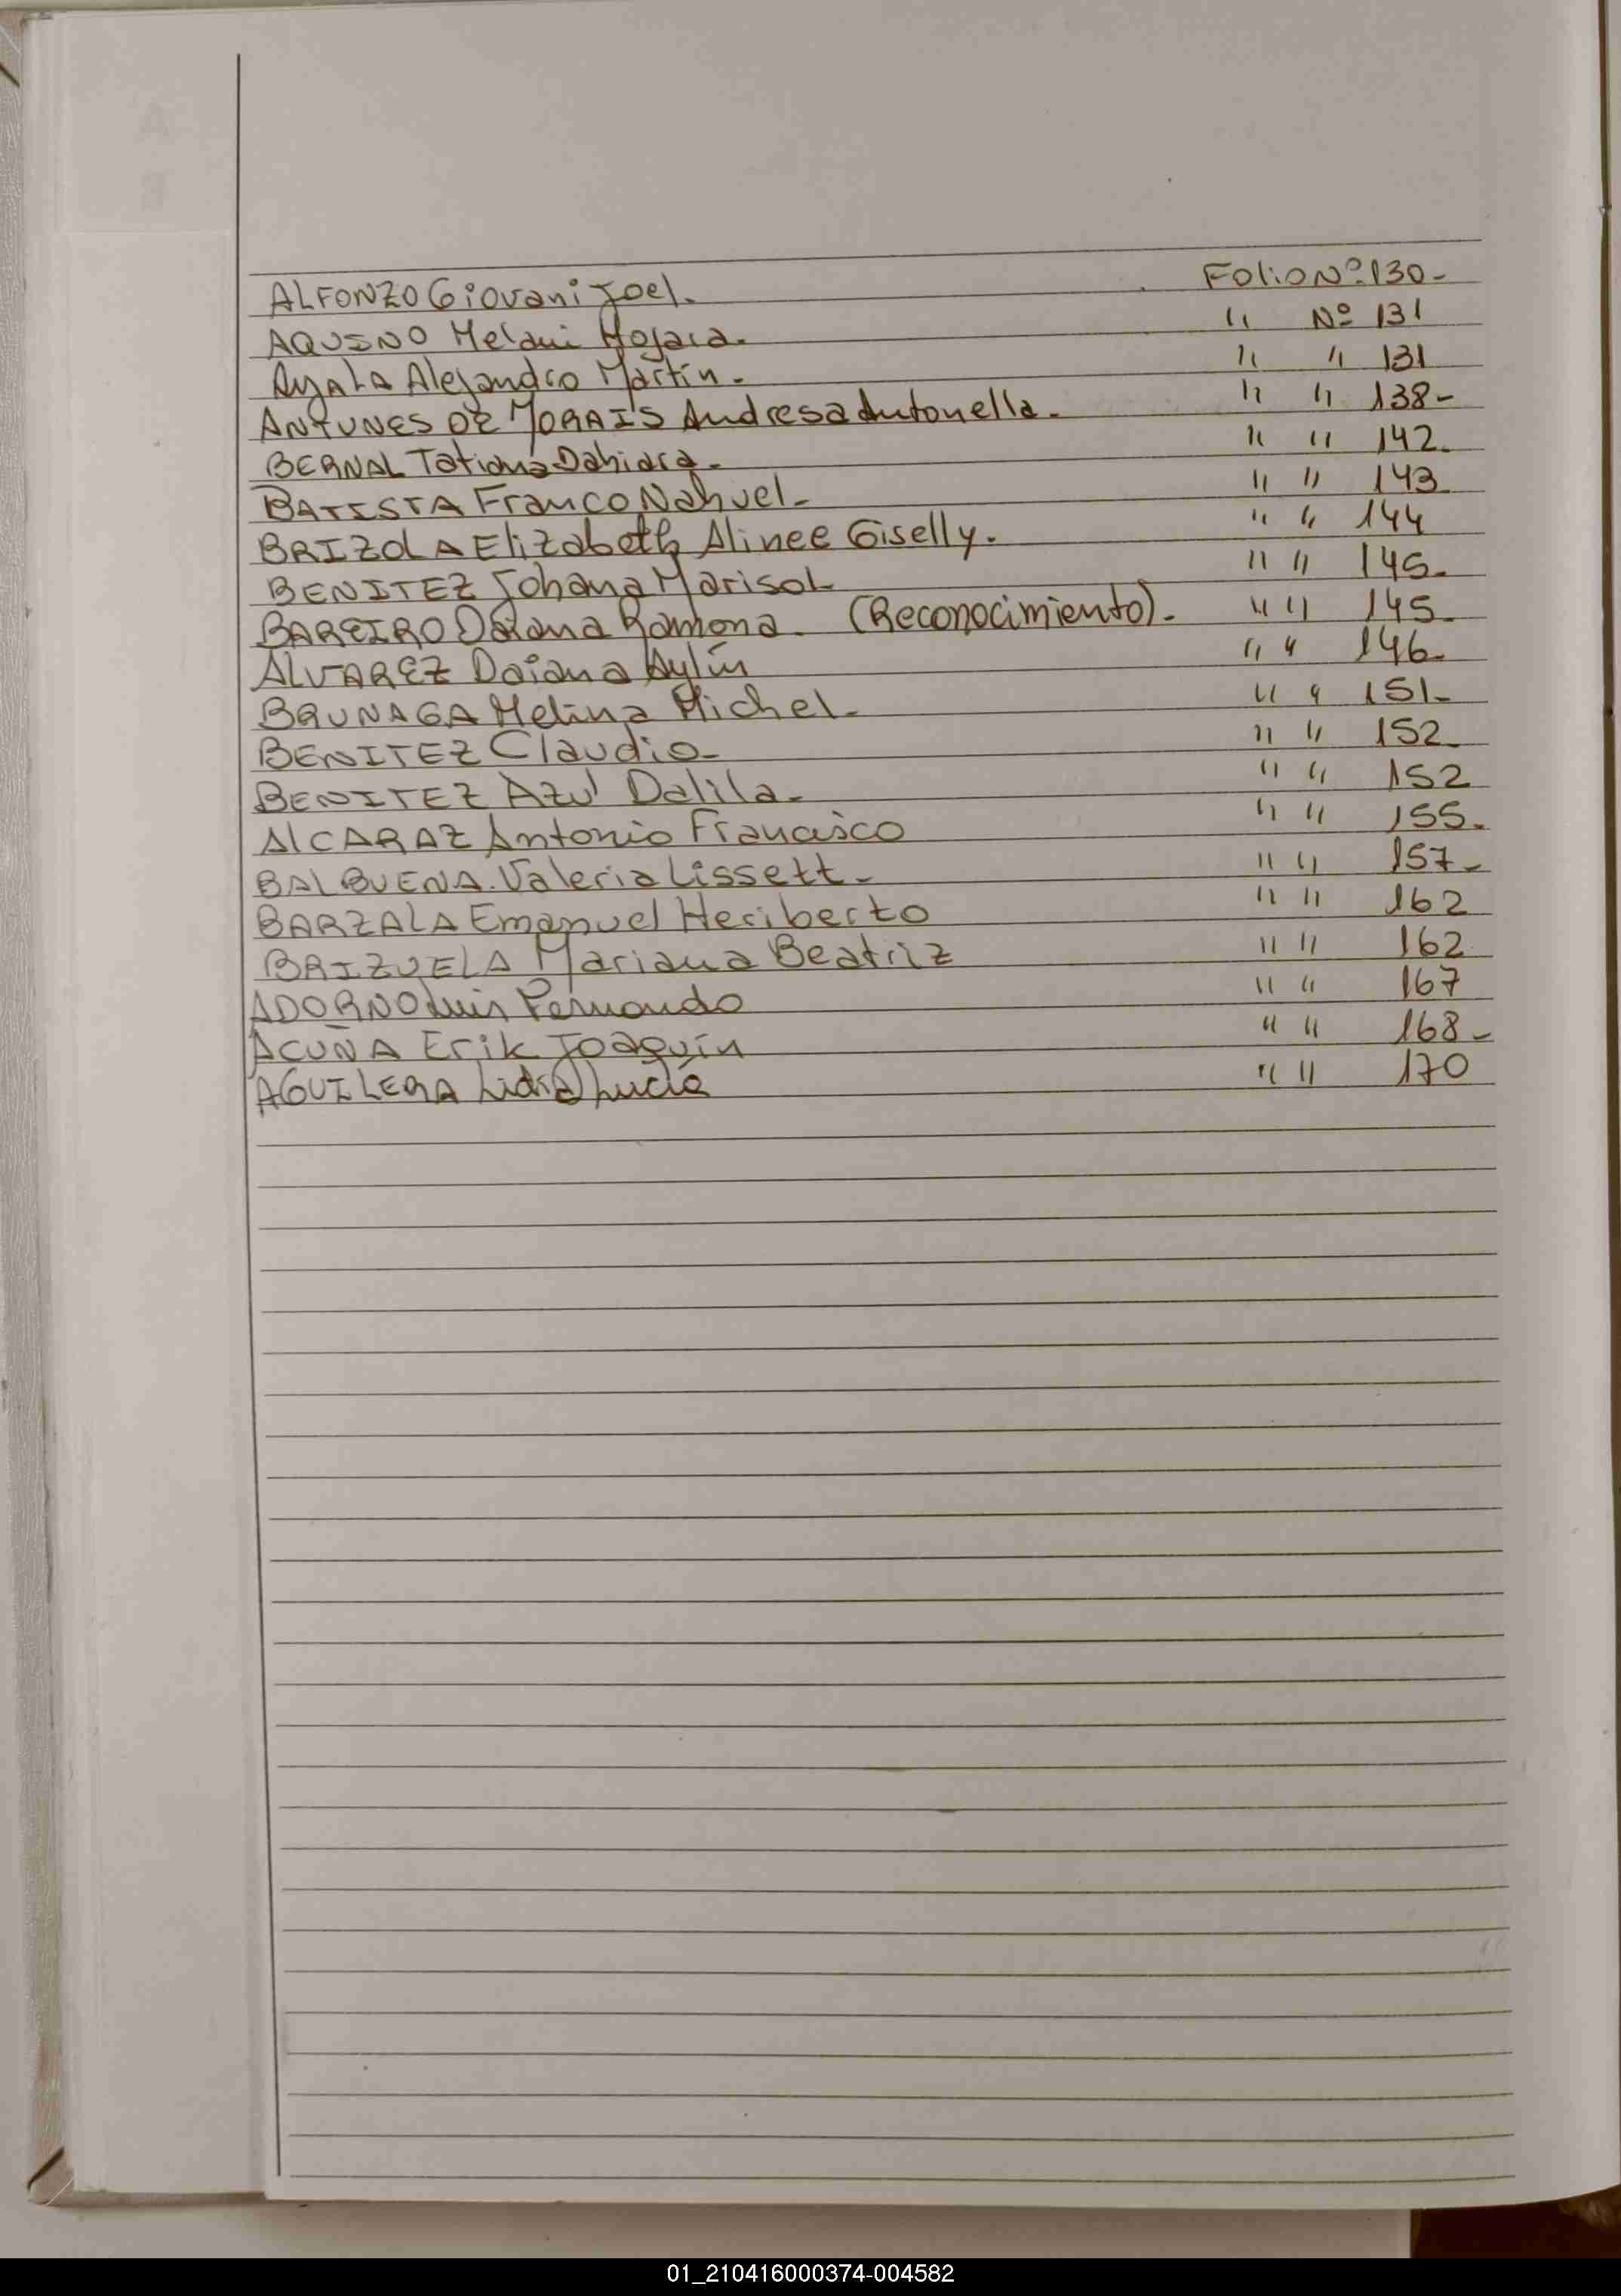 ALFONZO Giovani Joel. Folio Nº 130-
AQUINO Melani " Nº 131
Ayala Alejandro Martín. " " 131
ANTUNES DE MORAIS Andresa Antonella. " " 138-
BERNAL Tatiana Dahiara. " " 142.
BATISTA Franco Nahuel- " " 143
BRIZOLA Elizabeth Alinee Giselly. " " 144
BENITEZ Johana Marisol " " 145.
BAREIRO Daiana Ramona. (Reconocimiento). " " 145.
ALVAREZ Daiana Aylín " " 146.
BRUNAGA Melina Michel. " " 151-
BENITEZ Claudio- " " 152.
BENITEZ Azul Dalila. " " 152
AlCARAZ Antonio Francisco " " 155.
BALBUENA. Valeria Lissett- " " 157-
BARZALA Emanuel Heriberto " " 162
BRIZUELA Mariana Beatriz " " 162
ADORNO Luis Fernando " " 167
ACUÑA Erik Joaquín " " 168-
AGUILERA Lidia Lucía " " 170
01_210416000374-004582